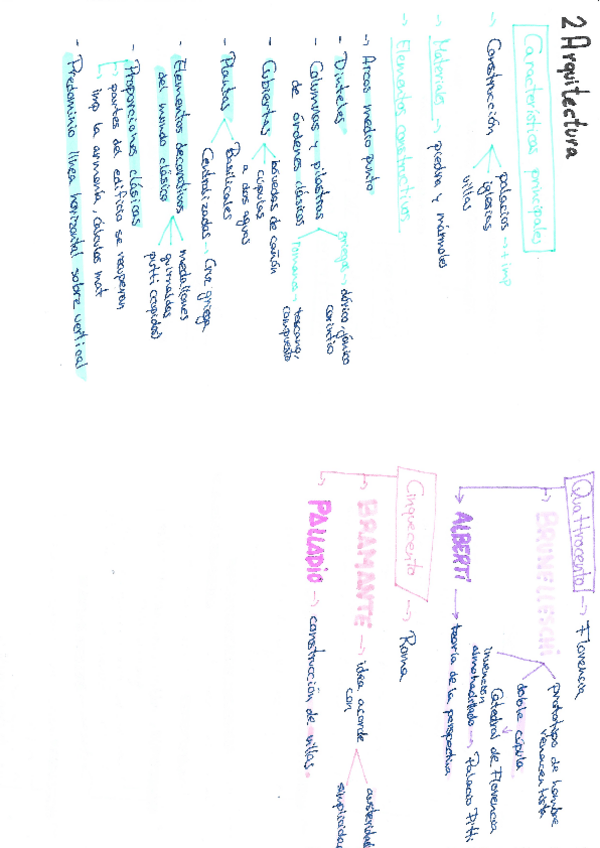 2 Arquitectura
Características principales
→ Construcción
palacios → + imp
iglesias
villas
→ Materiales → piedra y mármoles
→ Elementos constructivos
→ Arcos medio punto
- Dinteles
- Columnas y pilastras
de órdenes clásicos
griegos → dórico, jónico
corintio
romanos → toscano,
compuesto
- Cubiertas
bóvedas de cañón
cúpulas
a dos aguas
- Plantas
Basilicales
Centralizadas → Cruz griega
- Elementos decorativos
del mundo clásico
medallones
guirnaldas
putti (cupidos)
- Proporciones clásicas
→ partes del edificio se recuperan
→ imp la armonía, cálculos mat
- Predominio línea horizontal sobre vertical
Quattrocento → Florencia
→ BRUNELLESCHI
prototipo de hombre
renacentista
doble cúpula
Catedral de Florencia
invención
almohadillado → Palacio Pitti
→ ALBERTI → teoría de la perspectiva
Cinquecento → Roma
→ BRAMANTE → idea acorde
con
austeridad
simplicidad
→ PALLADIO → construcción de villas